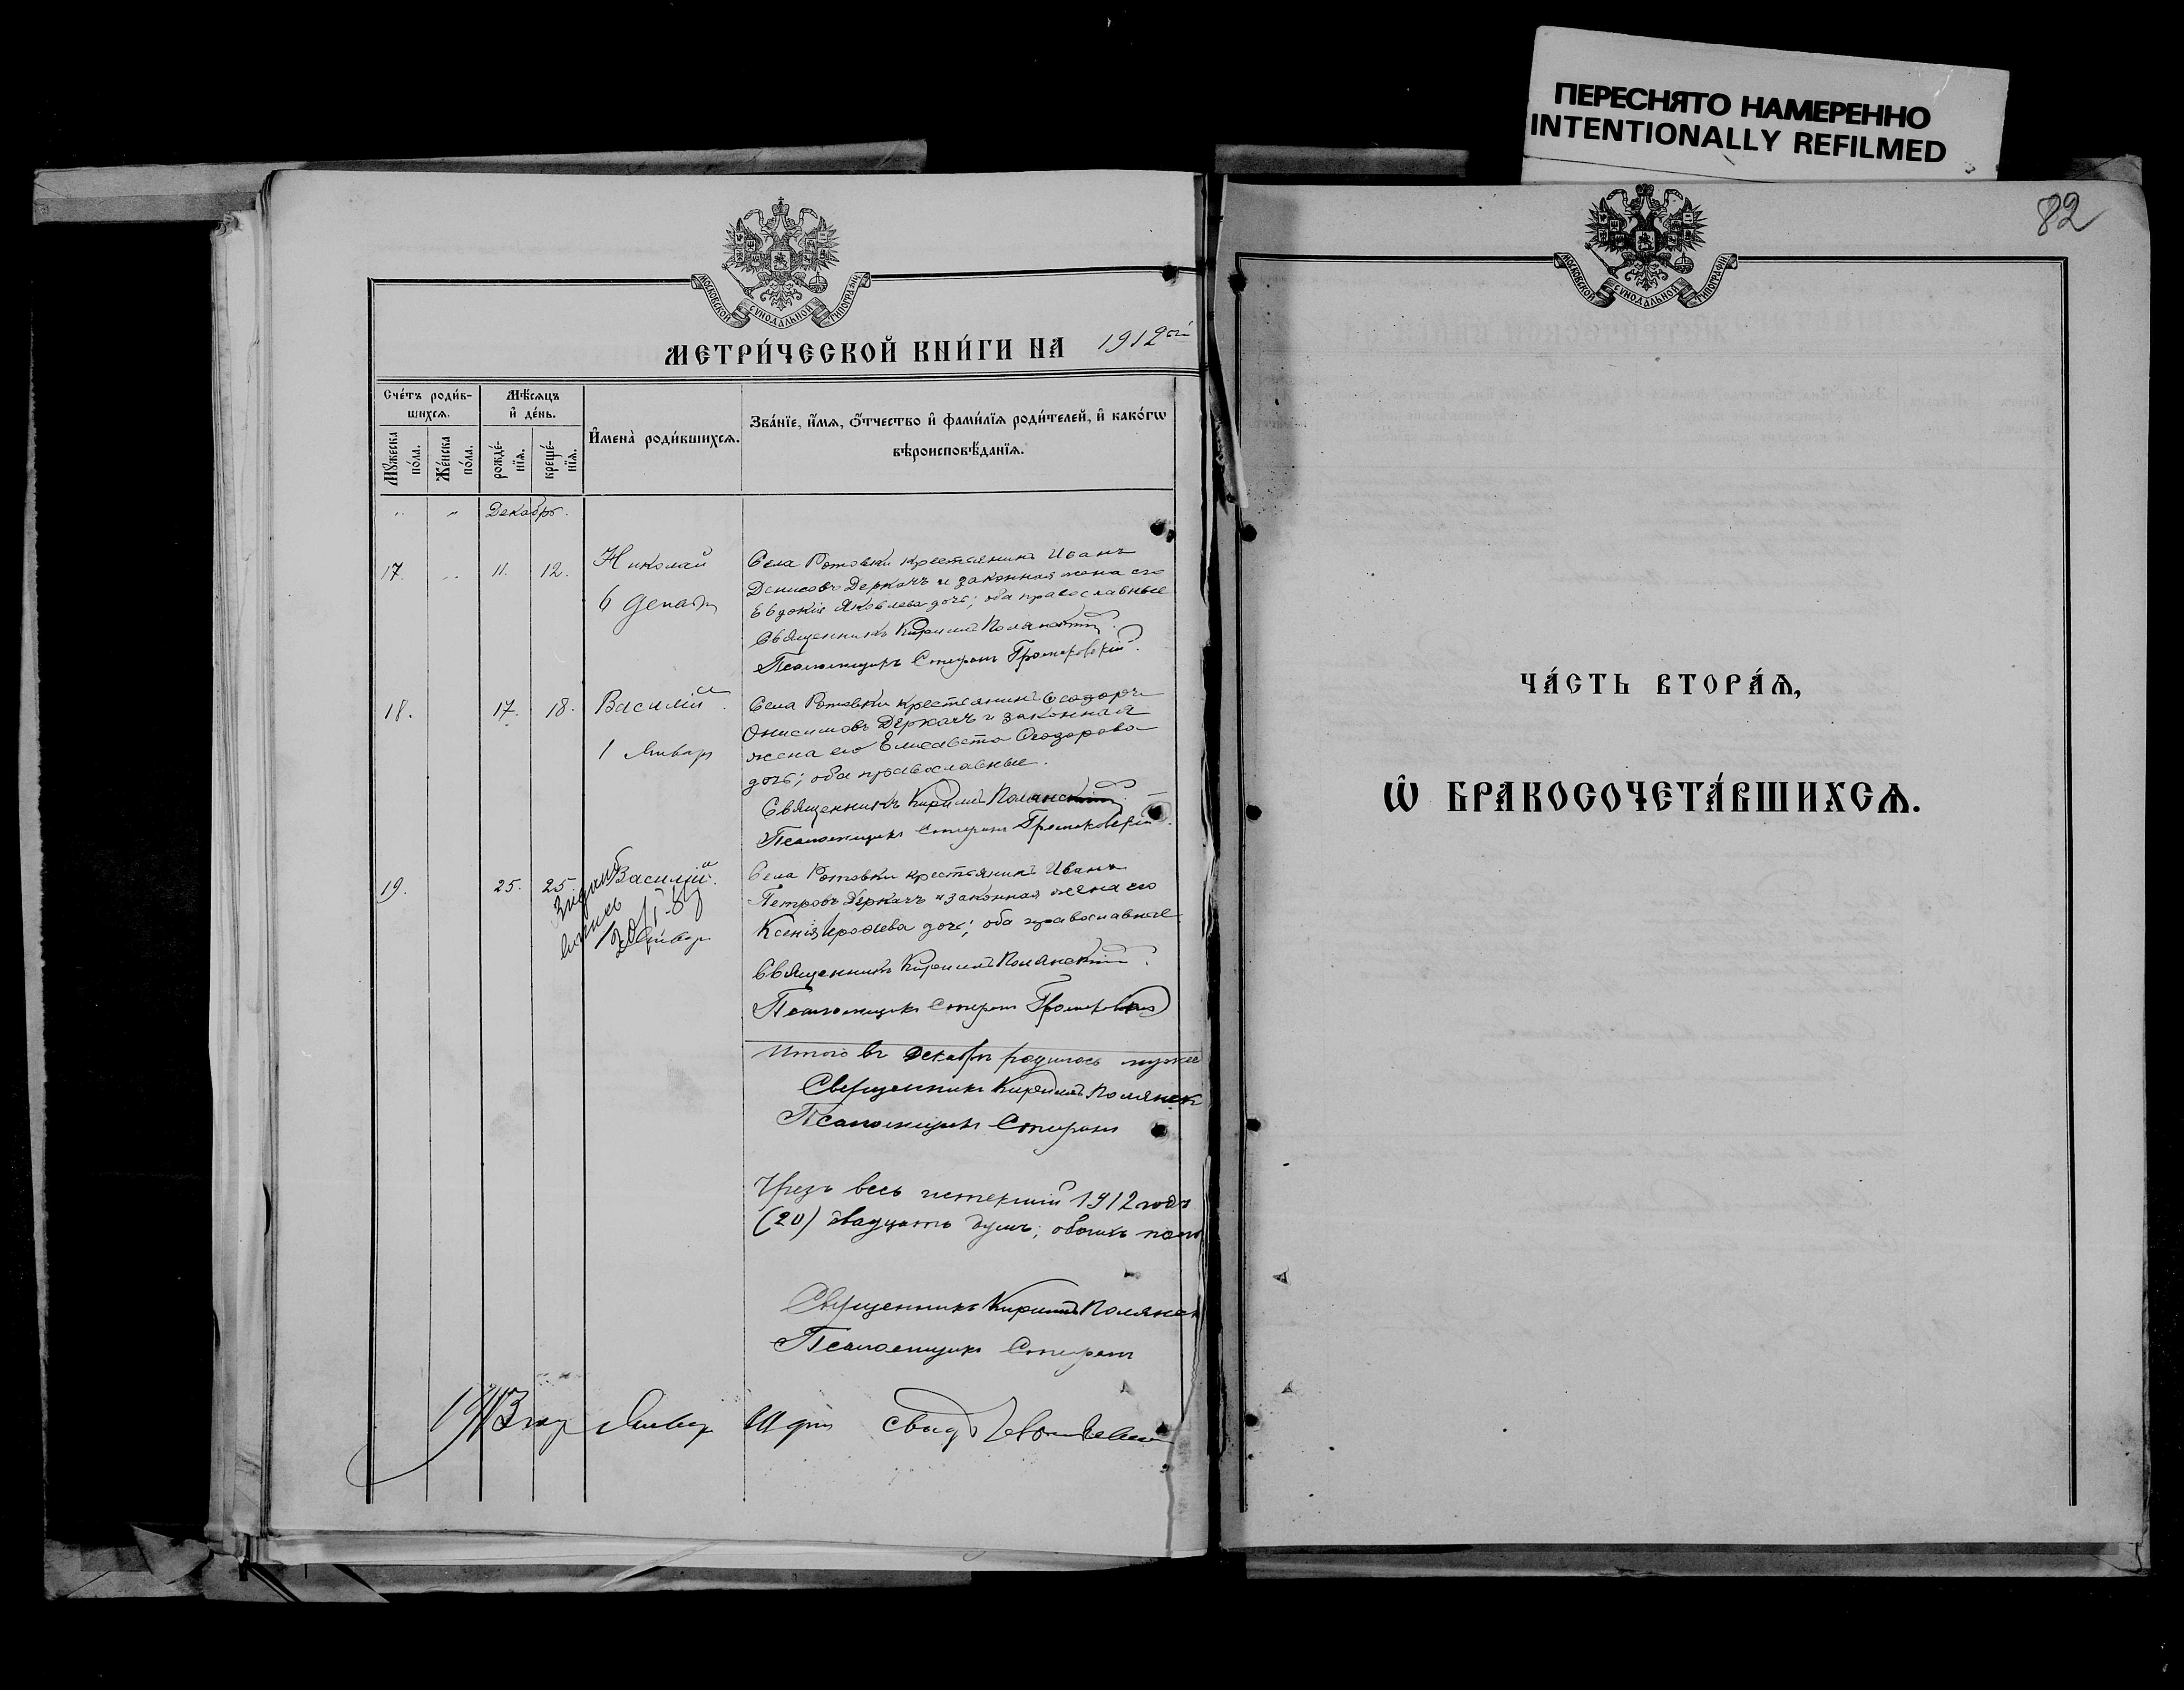 ПЕРЕСНЯТО НАМЕРЕННО
INTENTIONALLY REFILMED
82
МОСКОВСКОЙ СУНОДАЛЬНОЙ ТИПОГРАФІИ
МЕТРИ́ЧЕСКОЙ КНИ́ГИ НА 1912
Сче́тъ роди́в-
шихся.
Мѣ́сяцъ
и҆ де́нь.
И҆мена̀ роди́вшихся.
Зва́нїе, и҆́мя, ѻ҆́тчество и҆ фами́лїя роди́телей, и҆ како́гѡ
вѣроисповѣ́данїя.
Мꙋ́жеска
по́ла.
Же́нска
по́ла.
рожде́-
нїя.
креще́-
нїя.
Декабрь.
17. 11. 12. Николай
6 Декабр
Села Ротовки крестьянинъ Иванъ
Денисовъ Деркачъ и законная жена его
Евдокія Яковлева дочь; оба православные
Священникъ Кириллъ Полянскій.
Псаломщикъ Стефанъ
18. 17. 18. Василій.
1 Январ
Села Ротовки крестьянинъ Ѳеодоръ
Онисимовъ Деркачъ и законная
жена его Елисавета Ѳеодорова
дочь; оба православные.
Священникъ Кириллъ Полянскій.
Псаломщикъ Стефанъ
19. 25. 25. Василій.
Январ
Села Ротовки крестьянинъ Иванъ
Петровъ Деркачъ и законная жена его
Ксенія дочь; оба православные.
Священникъ Кириллъ Полянскій.
Псаломщикъ Стефанъ
Итого въ Декабрѣ родилось мужес
Священникъ Кириллъ Полянск
Псаломщикъ Стефанъ
Чрезъ весь истекшій 1912 годъ
(20) двадцать душъ; обоихъ
Священникъ Кириллъ Полянск
Псаломщикъ Стефанъ
1913 год Январ
МОСКОВСКОЙ СУНОДАЛЬНОЙ ТИПОГРАФІИ
ЧА́СТЬ ВТОРА́Ѧ,
Ѽ БРАКОСОЧЕТА́ВШИХСѦ.